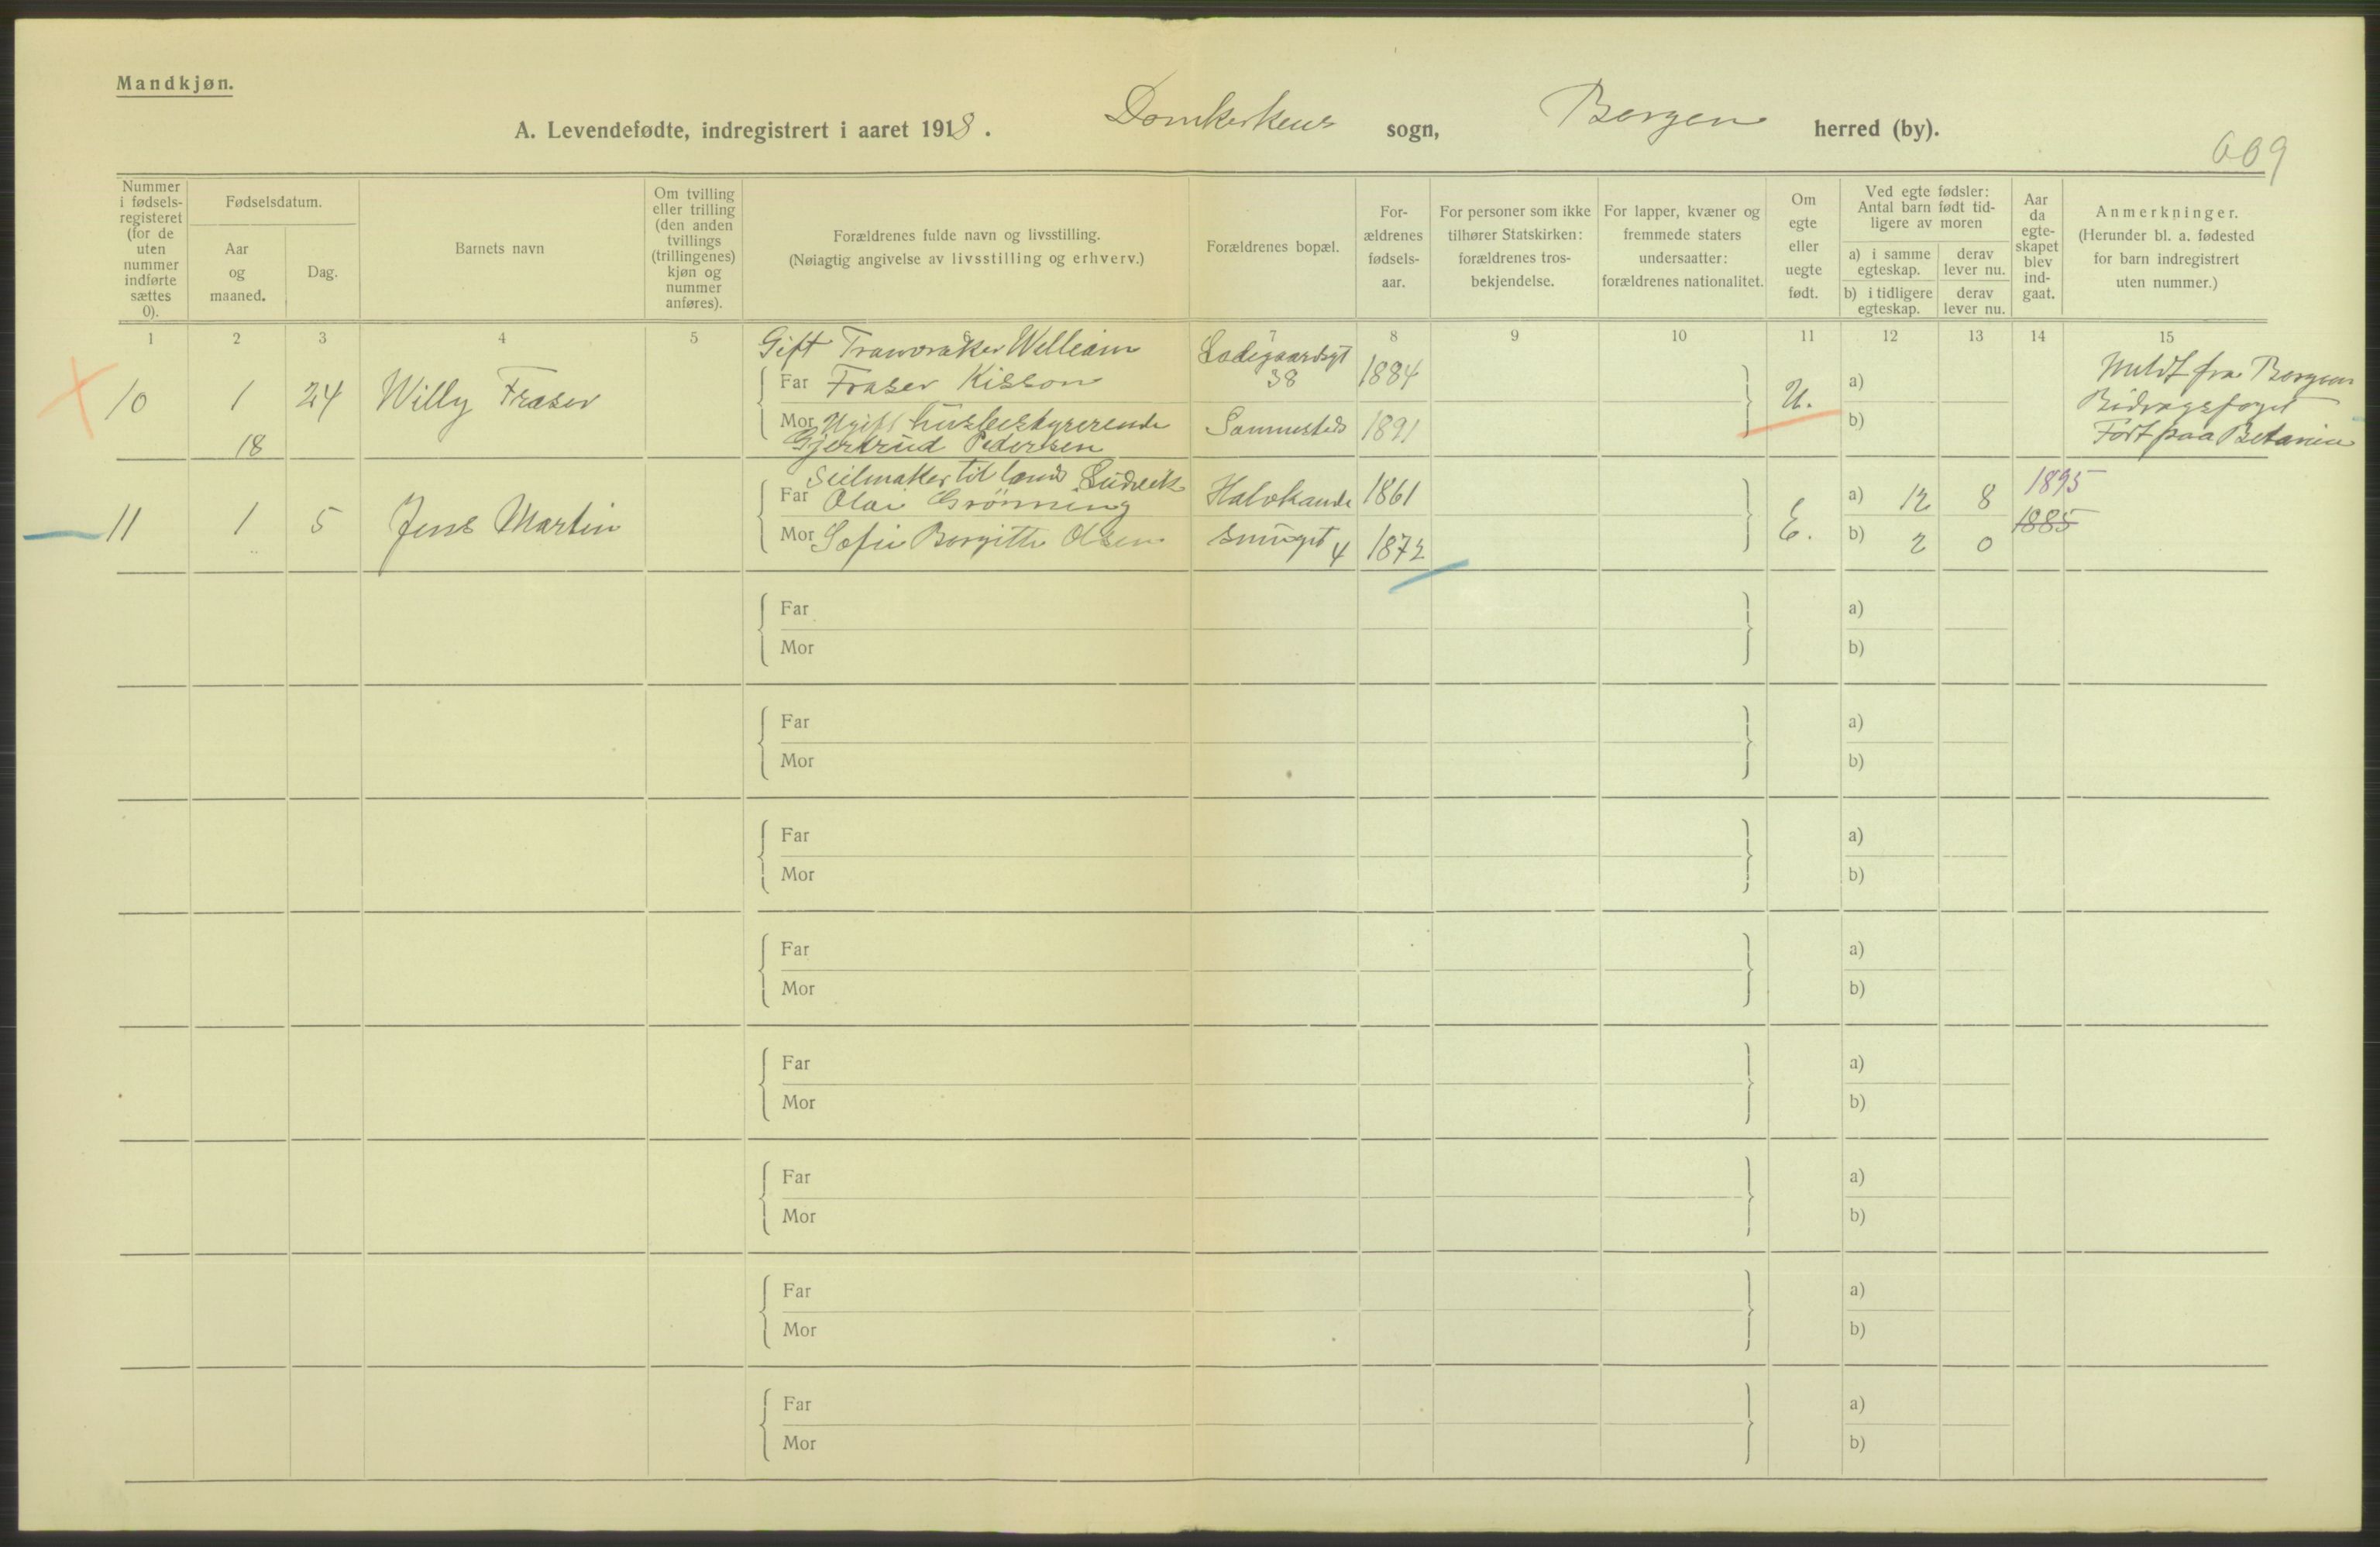 Mandkjøn.
A. Levendefødte, indregistrert i aaret 1918. Domkirkens sogn, Bergen herred (by).
669
Nummer i fødsels- registeret (for de uten nummer indførte sættes 0).
Fødselsdatum.
Aar og maaned.
Dag.
Barnets navn
Om tvilling eller trilling (den anden tvillings (trillingenes) kjøn og nummer anføres).
Forældrenes fulde navn og livsstilling.
(Nøiagtig angivelse av livsstilling og erhverv.)
Forældrenes bopæl.
For- ældrenes fødsels- aar.
For personer som ikke tilhører Statskirken: forældrenes tros- bekjendelse.
For lapper, kvæner og fremmede staters undersaatter: forældrenes nationalitet.
Om egte eller uegte født.
Ved egte fødsler: Antal barn født tid- ligere av moren
a) i samme egteskap.
derav lever nu.
b) i tidligere egteskap.
derav lever nu.
Aar da egte- skapet blev ind- gaat.
Anmerkninger.
(Herunder bl. a. fødested for barn indregistrert uten nummer.)
1 2 3 4 5 6 7 8 9 10 11 12 13 14 15
10 1 18 24 Willy Fraser
Gift William
Far Fraser Kisson
38 1884
Mor Ugift husbestyrerinde
Gjertrud Pedersen
Sammesteds 1891
U.
a)
b)
Meldt fra Bergens
Bidragsfoget
Født paa Betanien
11 1 5 Jens Martin
Seilmaker til lands Ludvik
Far Olai Grönning
1861
Mor Sofie Borgitte Olsen
smuget 4 1872
E.
a) 12 8
b) 2 0
1895
1885
Far
Mor
a)
b)
Far
Mor
a)
b)
Far
Mor
a)
b)
Far
Mor
a)
b)
Far
Mor
a)
b)
Far
Mor
a)
b)
Far
Mor
a)
b)
Far
Mor
a)
b)